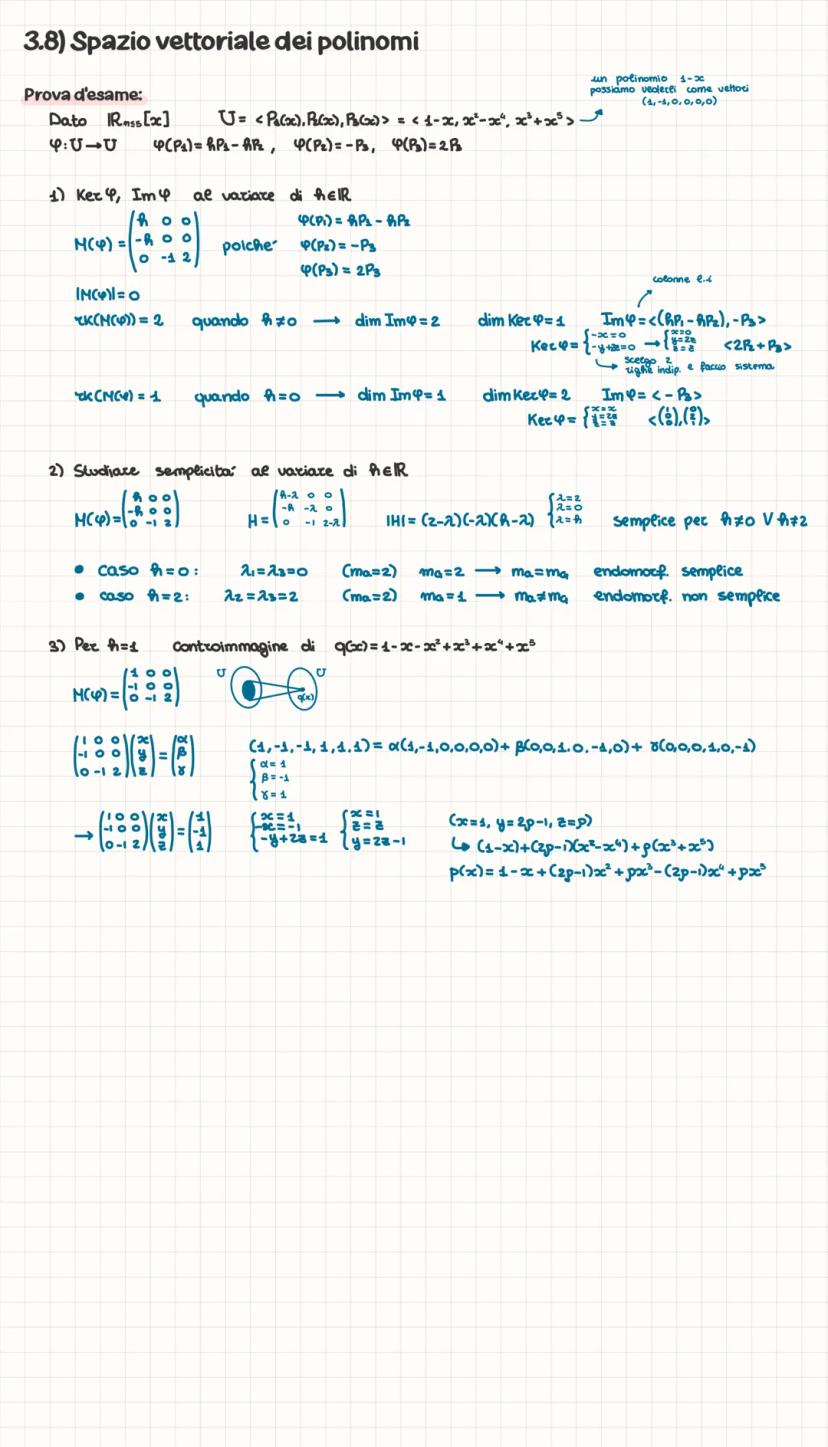 3.8) Spazio vettoriale dei polinomi
un polinomio 1-x
possiamo vederli come vettori
(1,-1,0,0,0,0)
Prova d'esame:
Dato ℝₙ≤₅[x] U = <P₁(x), P₂(x), P₃(x)> = <1-x, x²-x⁴, x³+x⁵>
φ: U→U φ(P₁)=hP₁-hP₂, φ(P₂)=-P₃, φ(P₃)=2P₃
1) Ker φ, Im φ al variare di h∈ℝ
M(φ) = (h 0 0 / -h 0 0 / 0 -1 2) poiche' φ(P₁) = hP₁ - hP₂
φ(P₂) = -P₃
φ(P₃) = 2P₃
|M(φ)| = 0
colonne l.i
rk(M(φ)) = 2 quando h≠0 → dim Im φ = 2 dim Ker φ = 1 Im φ = <(hP₁-hP₂), -P₃>
Ker φ = {-x=0 / -y+2z=0 → {x=0 / y=2z / z=z <2P₂+P₃>
scelgo 2
righe indip. e faccio sistema
rk(M(φ)) = 1 quando h=0 → dim Im φ = 1 dim Ker φ = 2 Im φ = <-P₃>
Ker φ = {x=x / y=2z / z=z <(1 / 0 / 0),(0 / 2 / 1)>
2) Studiare semplicita' al variare di h∈ℝ
M(φ) = (h 0 0 / -h 0 0 / 0 -1 2) H = (h-λ 0 0 / -h -λ 0 / 0 -1 2-λ) |H| = (2-λ)(-λ)(h-λ) {λ=2 / λ=0 / λ=h semplice per h≠0 V h≠2
• caso h=0: λ₁=λ₃=0 (ma=2) mg=2 → ma=mg endomorf. semplice
• caso h=2: λ₂=λ₃=2 (ma=2) mg=1 → ma≠mg endomorf. non semplice
3) Per h=1 Controimmagine di q(x)=1-x-x²+x³+x⁴+x⁵
M(φ) = (1 0 0 / -1 0 0 / 0 -1 2) U U q(x)
(1 0 0 / -1 0 0 / 0 -1 2)(x / y / z) = (α / β / γ) (1,-1,-1,1,1,1) = α(1,-1,0,0,0,0) + β(0,0,1.0,-1,0) + γ(0,0,0,1,0,-1)
{α=1 / β=-1 / γ=1
→ (1 0 0 / -1 0 0 / 0 -1 2)(x / y / z) = (1 / -1 / 1) {x=1 / -x=-1 / -y+2z=1 {x=1 / z=z / y=2z-1 (x=1, y=2p-1, z=p)
↳ (1-x)+(2p-1)(x²-x⁴)+p(x³+x⁵)
p(x)=1-x+(2p-1)x²+px³-(2p-1)x⁴+px⁵